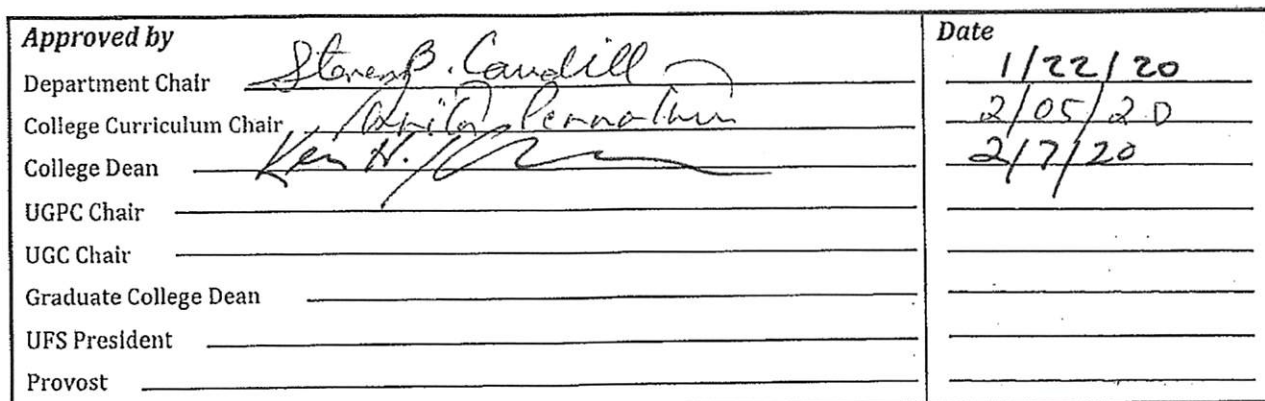 Approved by Date
Department Chair Steven B. Caudill 1/22/20
College Curriculum Chair Anita Pennathur 2/05/20
College Dean Ken H. 2/7/20
UGPC Chair
UGC Chair
Graduate College Dean
UFS President
Provost